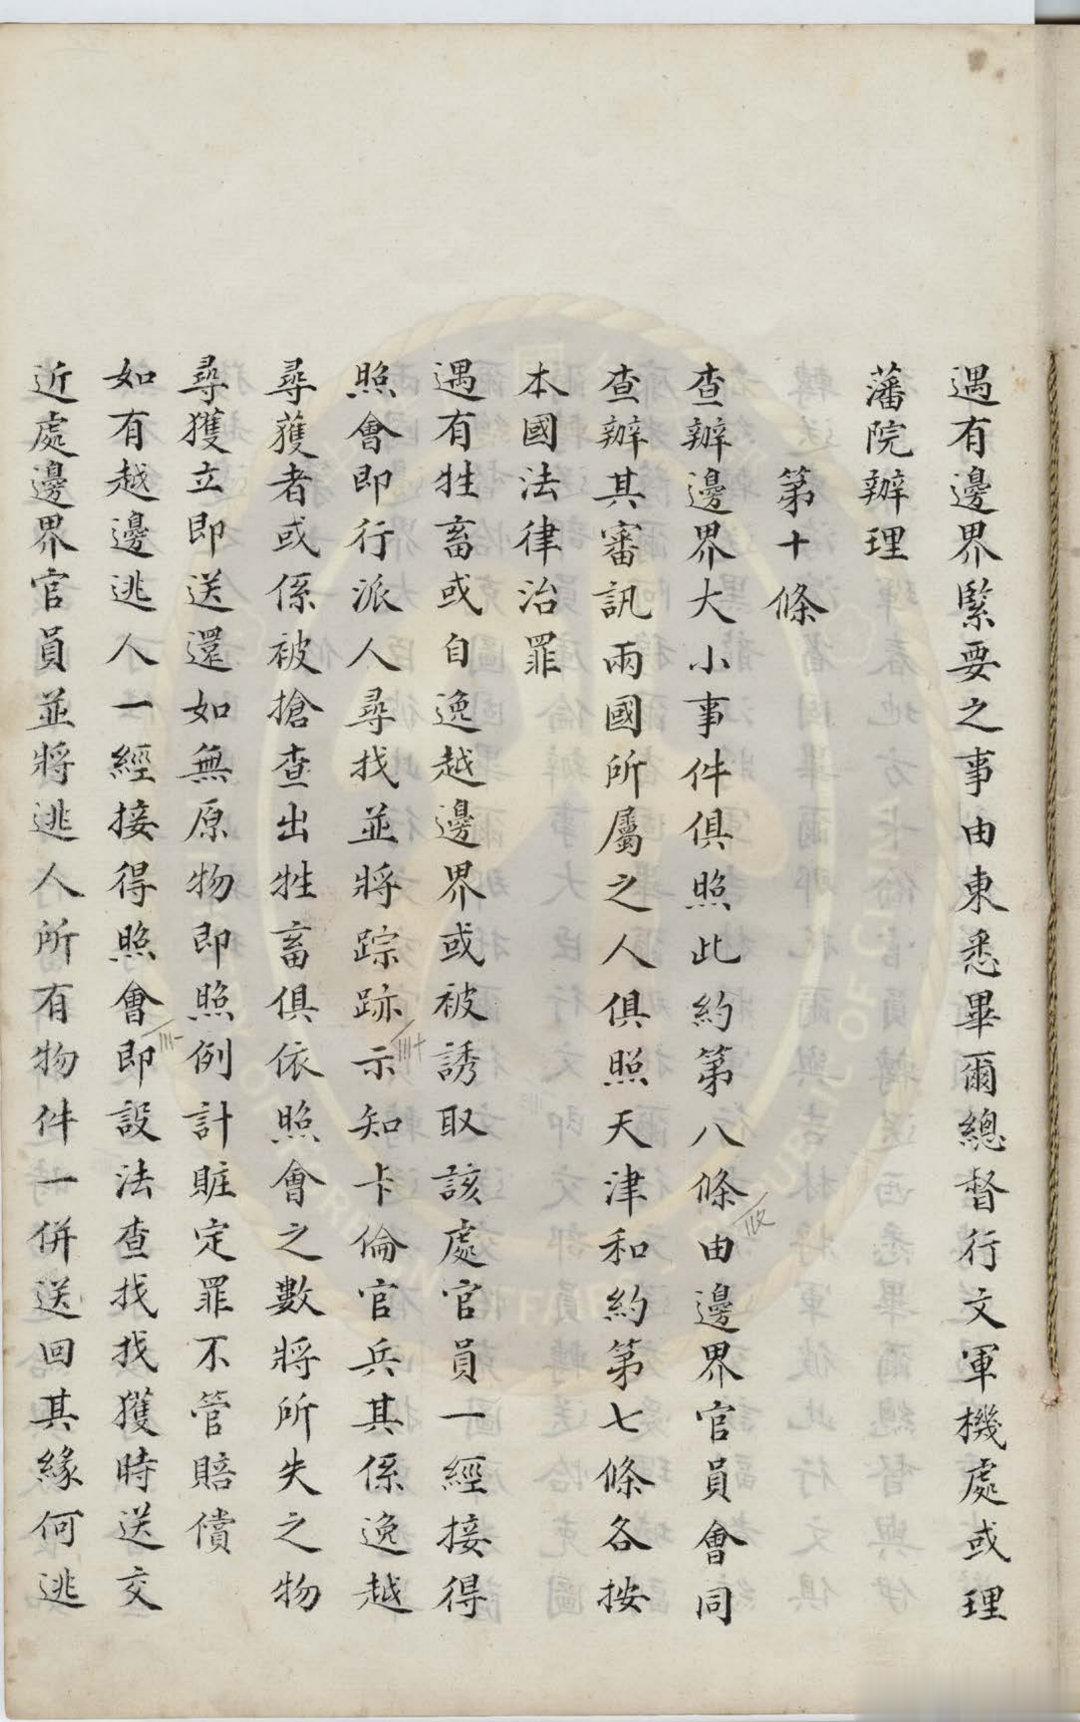 遇有邊界緊要之事由東悉畢爾總督行文軍機處或理
藩院辦理
第十條
查辦邊界大小事件俱照此約第八條由邊界官員會同
查辦其審訊兩國所屬之人俱照天津和約第七條各按
本國法律治罪
遇有牲畜或自逸越邊界或被誘取該處官員一經接得
照會即行派人尋找並將踪跡示知卡倫官兵其係逸越
尋獲者或係被搶查出牲畜俱依照會之數將所失之物
尋獲立即送還如無原物即照例計賍定罪不管賠償
如有越邊逃人一經接得照會即設法查找找獲時送交
近處邊界官員並將逃人所有物件一併送回其緣何逃